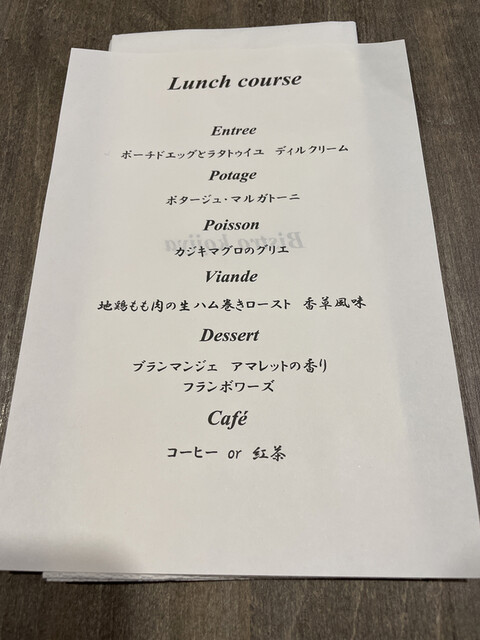 Lunch course
Entree
ポーチドエッグとラタトゥイユ ディルクリーム
Potage
ポタージュ・マルガトーニ
Poisson
カジキマグロのグリエ
Viande
地鶏もも肉の生ハム巻きロースト 香草風味
Dessert
ブランマンジェ アマレットの香り
フランボワーズ
Café
コーヒー or 紅茶